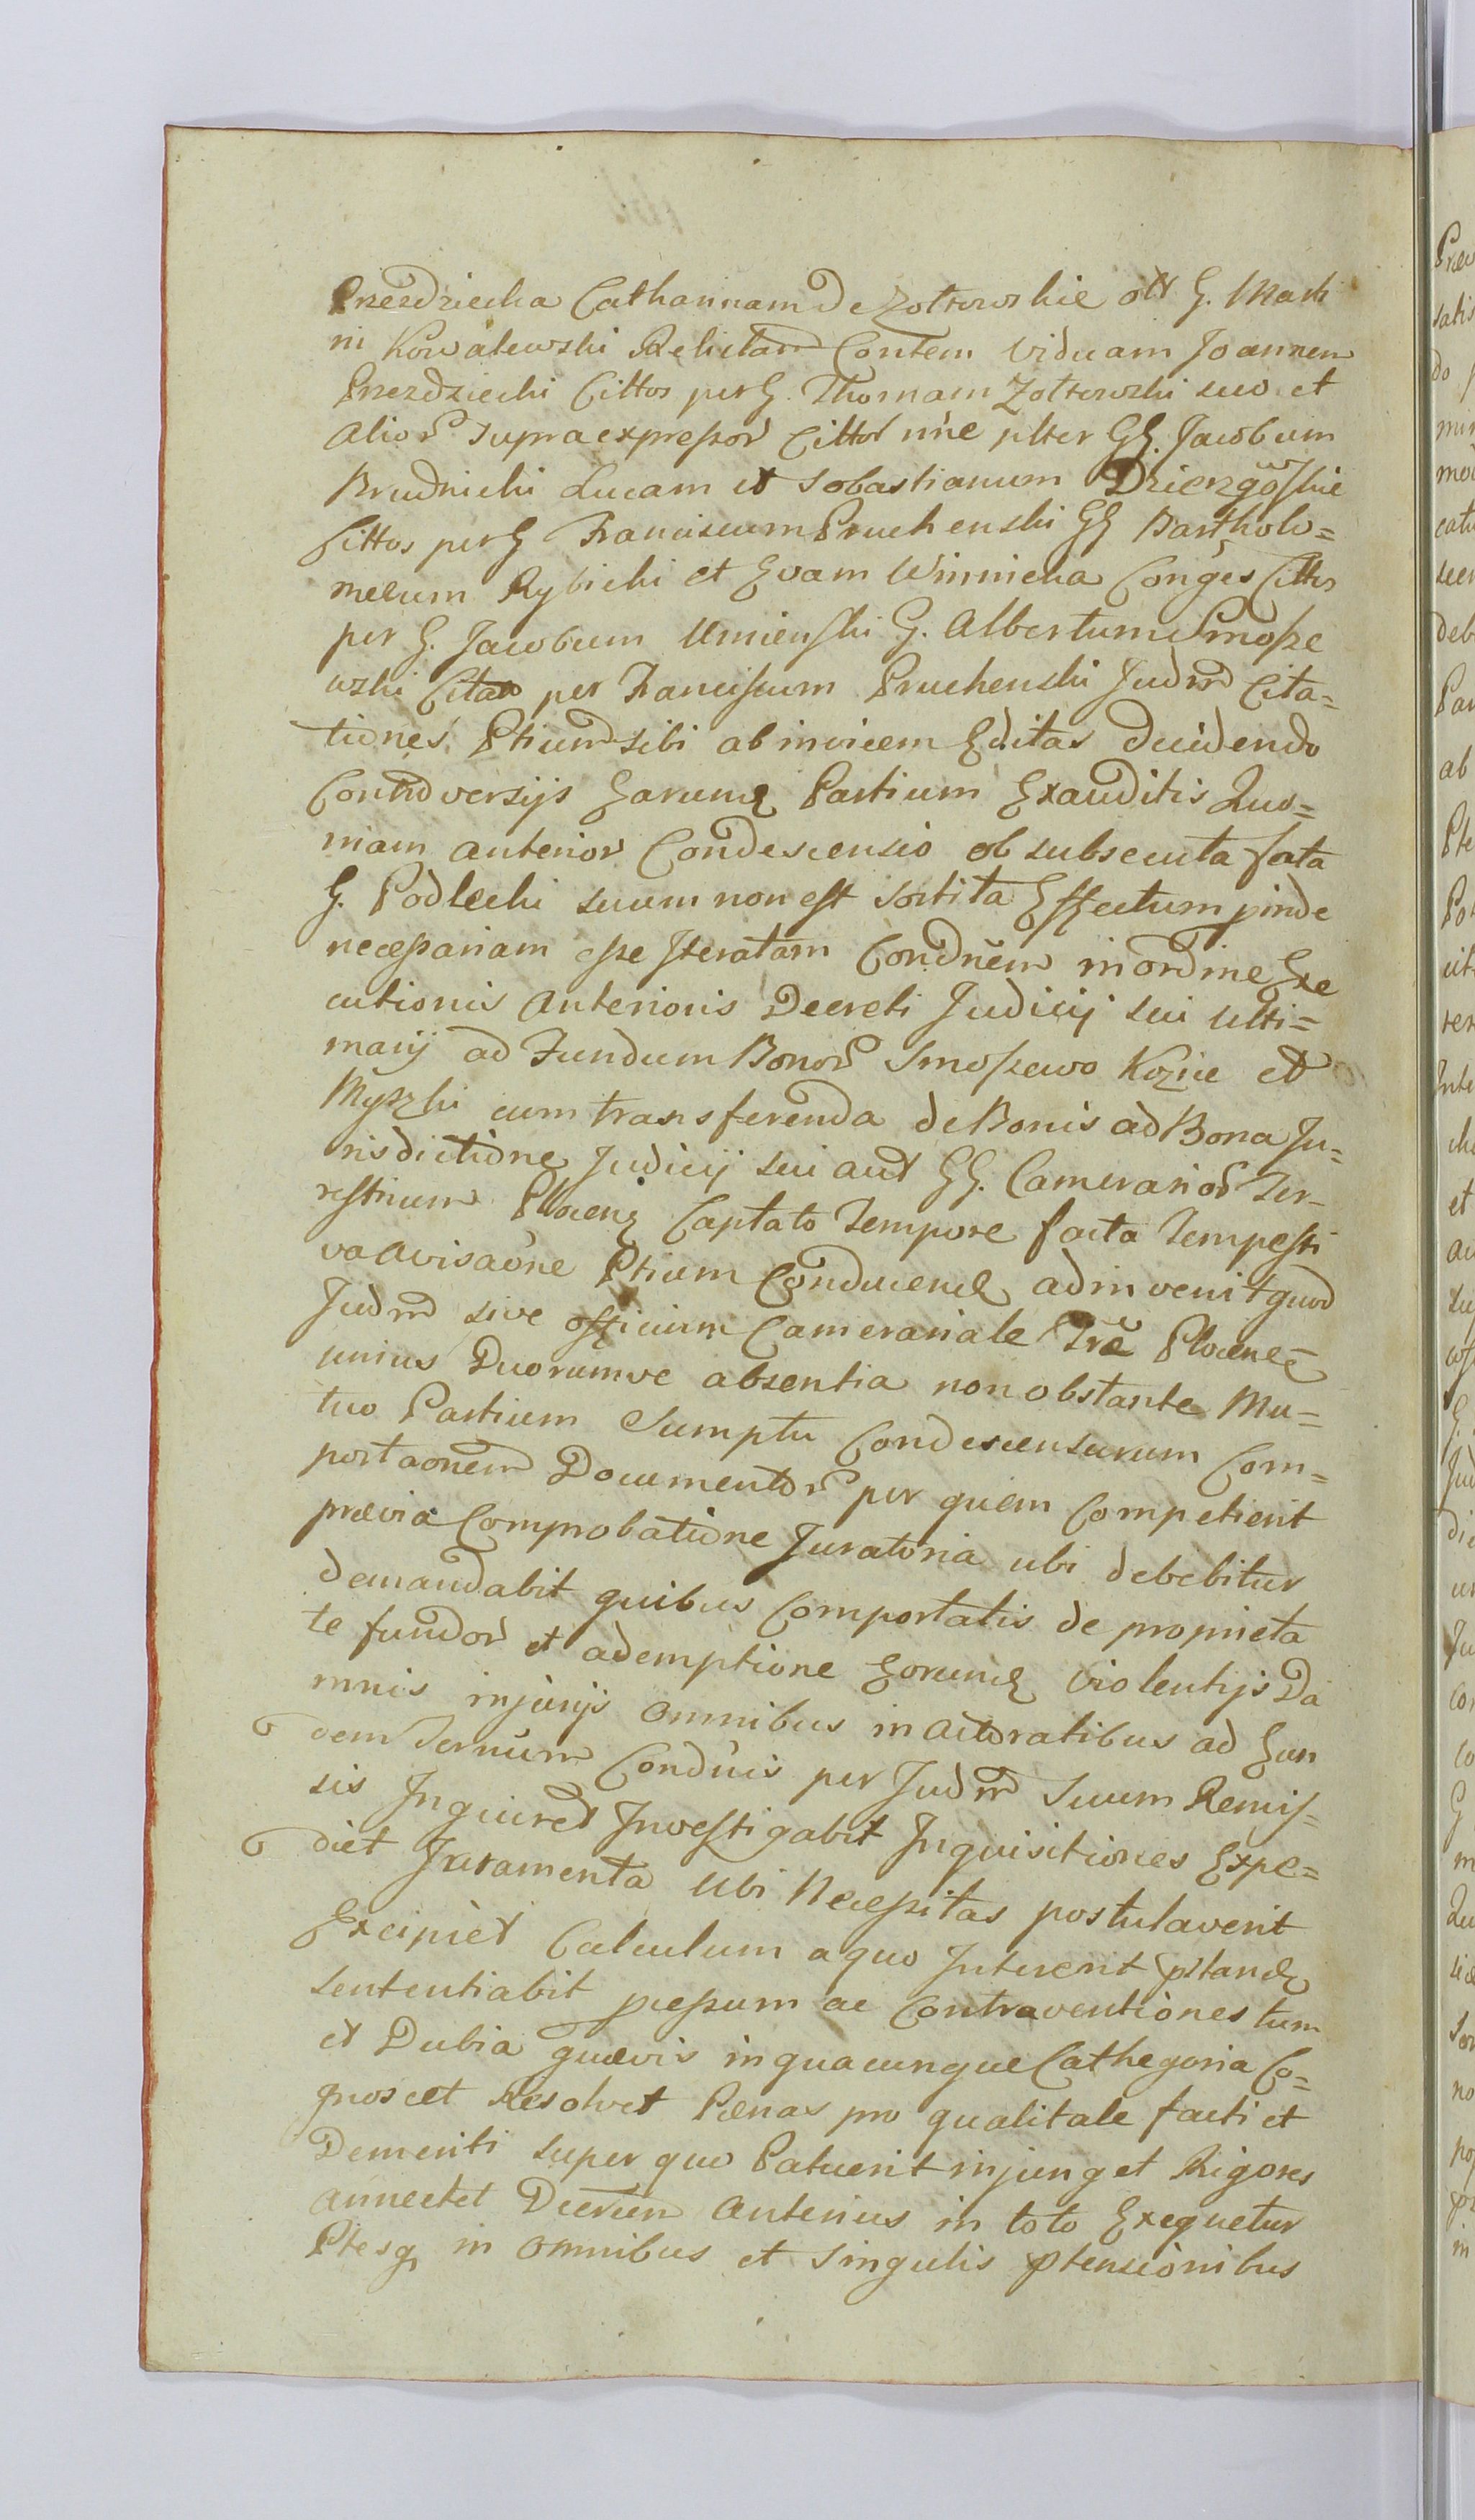 Przezdziecka Catharinam de Zottowskie olr G. Marti
ni Kowalewski Relictam Contem Viduam Joannem
Przezdziecki Cittos per G. Thomam Zottowski suo et
Alior supraexpressor Cittor nne plter GG. Jacobum
Brudnicki Lucam et Sobastianum Dziergowskie
Cittos per G Franciscum Pruchenski GG Bartholo=
meum Rybicki et Evam Winnicka Conges Cittos
per G. Jacobum Umienski G. Albertum Smosze
wski Citat per Franciscum Pruchenski Judm Cita=
tiones Ptium sibi ab invicem Editas decidendo
Controversijs Earumq Partium Exauditis Quo=
niam anterior Condescensio ob subsecuta fata
G. Podlecki suum non est sortita Effectum pinde
necessariam esse Iteratam Condnem in ordine Exe
cutionis Anterioris Decreti Judicij sui Ulti=
marij ad Fundum Bonor Smoszewo Kozice et
Myszki cum transferenda de Bonis ad Bona Ju=
risdictione Judicij sui aut GG. Camerarior Ter-
restrium Plocen Captato Tempore facta Tempesti
va avisaone Ptium Conducend adinvenit quod
Judm sive officium Camerariale Tre Plocen
unius Duorumve absentia non obstante Mu=
tuo Partium Sumptu Condescensurum Com=
portaonem Documentor per quem Competierit
prævia Comprobatione Juratoria ubi debebitur
demandabit quibus Comportatis de proprieta
te fundor et ademptione Eorumq Violentijs Da
mnis injurijs omnibus in actoratibus ad Eun
dem Ternum Condnis per Judm Suum Remis=
sis Inquiret Investigabit Inquisitiones Expe=
diet Juramenta Ubi Necessitas postulaverit
Excipiet Calculum a quo Intererit pstand
sententiabit pressum ac Contraventiones tum
et Dubia quævis in quacunque Cathegoria Co=
gnoscet Resolvet Pænas pro qualitate facti et
Demeriti super quo Patuerit injunget Rigores
annectet Decrum Anterius in toto Exequetur
Ptesq in omnibus et Singulis ptensionibus